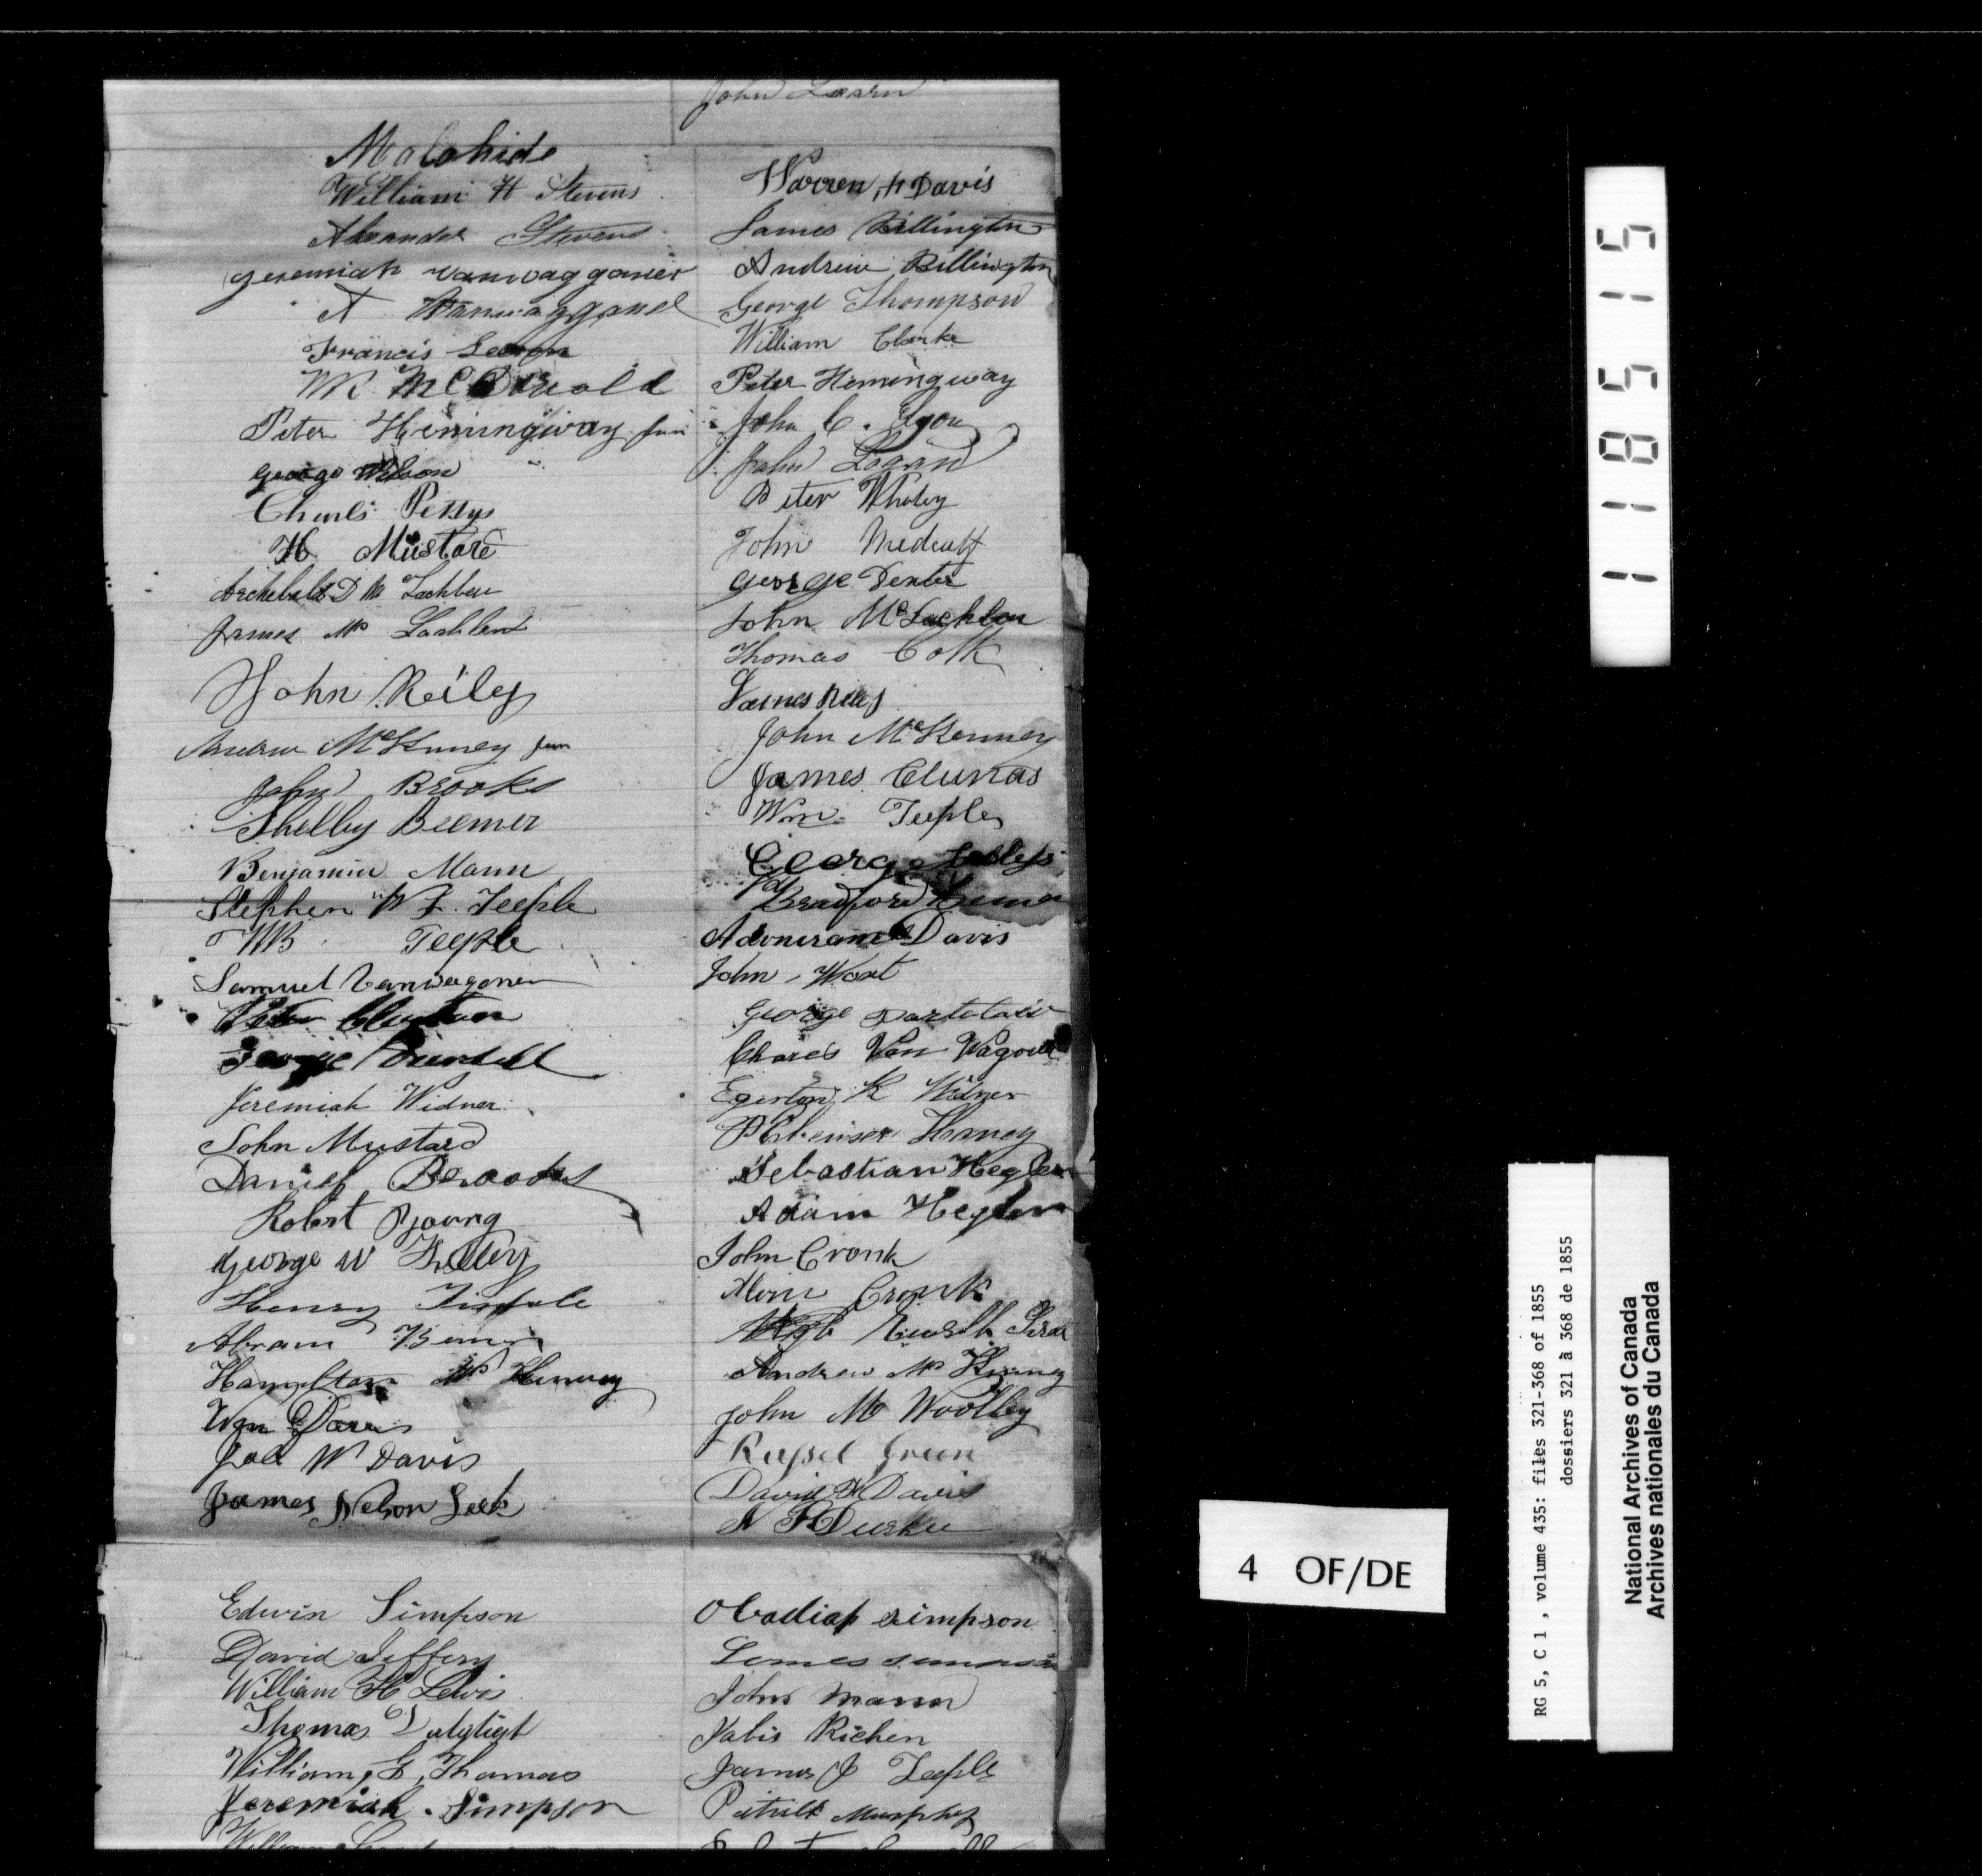 John Learn
Malahide
William H Stevens
Alexander Stevens
Jeremiah vanwagganer
A
Francis
Wm McDonald
Peter Hemingway Jun
George Wilson
Charls Pettys
H Mustard
Archebald D Mc Lachlen
James Mc Lachlen
John Reily
Andrew McKenney jun
John Brooks
Shelby Beemer
Benjamin Mann
Stephen W Teeple
WB Teeple
Samuel Vanwagoner
Peter Clunton
George
Jeremiah Widner
John Mustard
Daniel
Robert Young
George W Kelley
Henry Tisdale
Abram
Hamilton Mc Kenney
Wm Davis
Joel W Davis
James Nelson Leek
Warren H Davis
James Billington
Andrew Billington
George Thompson
William Clarke
Peter Hemingway
John C. Lyon
John Logan
Peter Whaley
John Medcalf
George Dexter
John McLachlan
Thomas Colk
James Riley
John McKenney
James Clunas
Wm Teeple
Georg
Bradford
Adoniram Davis
John Wort
George
Chares Van Wagoner
Egerton R Widner
Ebenezer Haney
Sebastian Hegler
Adam Hegler
John Cronk
Alvin Cronk
Andrew Mc Kenney
John M Woolley
Russel Green
David H Davis
N H Durkee
Edwin Simpson
David Jeffery
William H Lewis
Thomas
William G, Thomas
Jeremiah Simpson
William
Obadiah simpson
James simpson
John mann
Jabis Richen
James J Teeple
Patrick Murphey
1 1 8 5 1 5
4 OF/DE
RG 5, C 1, volume 435: files 321-368 of 1855
dossiers 321 à 368 de 1855
National Archives of Canada
Archives nationales du Canada